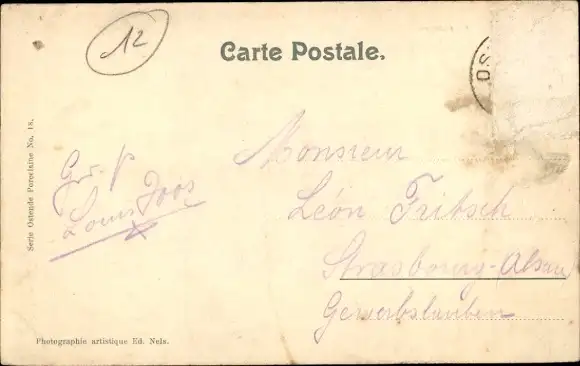 12
Carte Postale.
OS
Serie Ostende Porcelaine No. 18.
Gr. f
Louis Joos
Monsieur
Léon Fritsch
Strasbourg-Alsace
Gewerbslauben
Photographie artistique Ed. Nels.